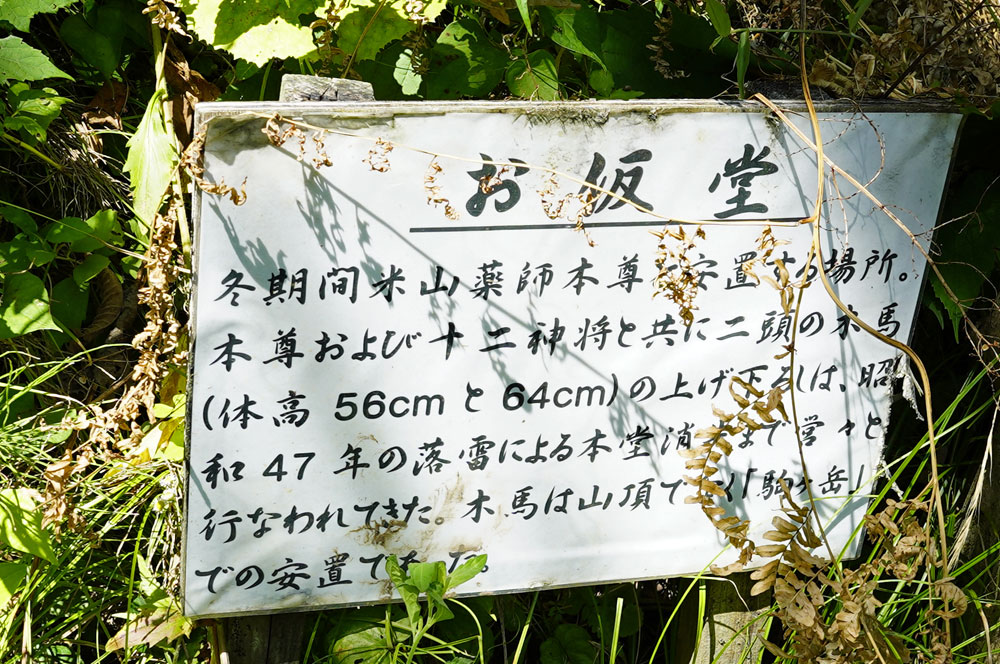 お仮堂
冬期間米山薬師本尊を安置する場所。
本尊および十二神将と共に二頭の木馬
(体高 56cmと 64cm)の上げ下ろしは、昭
和 47 年の落雷による本堂消失まで営々と
行なわれてきた。木馬は山頂でなく「駒ヶ岳」
での安置であった。